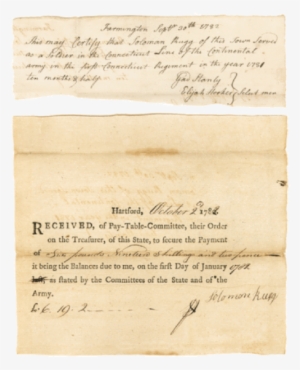 Farmington Sept 20th 1782
This may Certify that Soloman Rugg of this Town Served
as a Soldier in the Connecticut Line of the Continental
army in the first Connecticut Regiment in the year 1781
ten months & half
Elijah Hooker Select men
Hartford, October 2d 178
RECEIVED, of Pay-Table-Committee, their Order
on the Treasurer, of this State, to secure the Payment
of Six pounds Nineteen Shillings and two pence
it being the Balances due to me, on the first Day of January 1782
as stated by the Committees of the State and of the
Army.
£6. 19. 2
Solomon Rugg